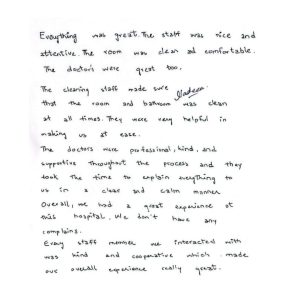 Everything was great. The staff was nice and
attentive. The room was clean and comfortable.
The doctors were great too.
The cleaning staff made sure
that the room and bathroom was clean
at all times. They were very helpful in
making us at ease.
The doctors were professional, kind, and
supportive throughout the process and they
took the time to explain everything to
us in a clear and calm manner
Overall, we had a great experience at
this hospital. We don't have any
complains.
Every staff member we interacted with
was kind and cooperative which made
our overall experience really great.